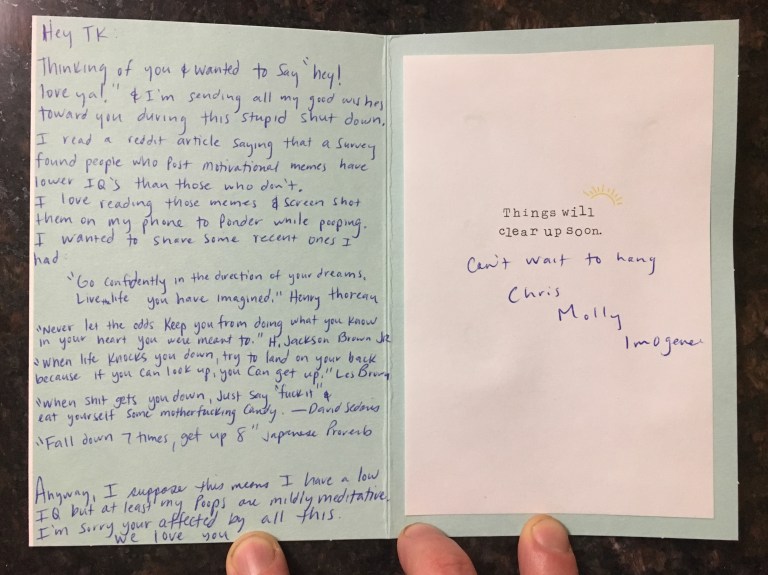 Hey TK:
Thinking of you & wanted to say "hey!
love ya!" & I'm sending all my good wishes
toward you during this stupid shut down.
I read a reddit article saying that a survey
found people who post motivational memes have
lower IQ's than those who don't.
I love reading those memes & screen shot
them on my phone to ponder while pooping.
I wanted to share some recent ones I
had:
"Go confidently in the direction of your dreams.
Live life you have imagined." Henry thoreau
"Never let the odds keep you from doing what you know
in your heart you were meant to." H. Jackson Brown Jr.
"When life knocks you down, try to land on your back
because if you can look up, you can get up." Les Brown
"When shit gets you down, just say "fuck it" &
eat yourself some motherfucking candy. — David Sedaris
"Fall down 7 times, get up 8" Japanese Proverb
Anyway, I suppose this means I have a low
IQ but at least my poops are mildly meditative.
I'm sorry your affected by all this.
We love you
Things will
clear up soon.
Can't wait to hang
Chris
Molly
Imogene